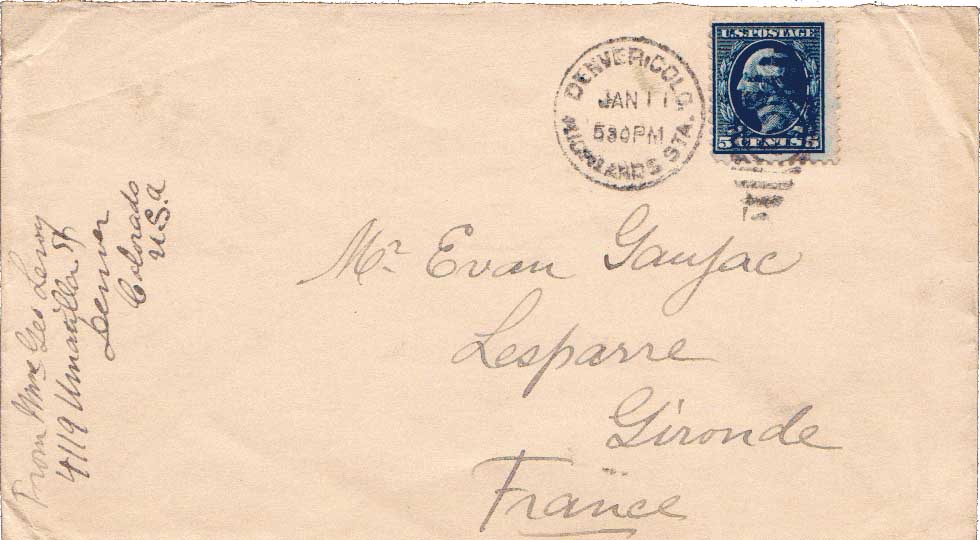 DENVER, COLO.
JAN 11
530 PM
HIGHLANDS STA.
U.S. POSTAGE
5 CENTS 5
Mr Evan Gaujac
Lesparre
Gironde
France
From Mme Geo Leroy
4119 Umatilla St
Denver
Colorado
U.S.A